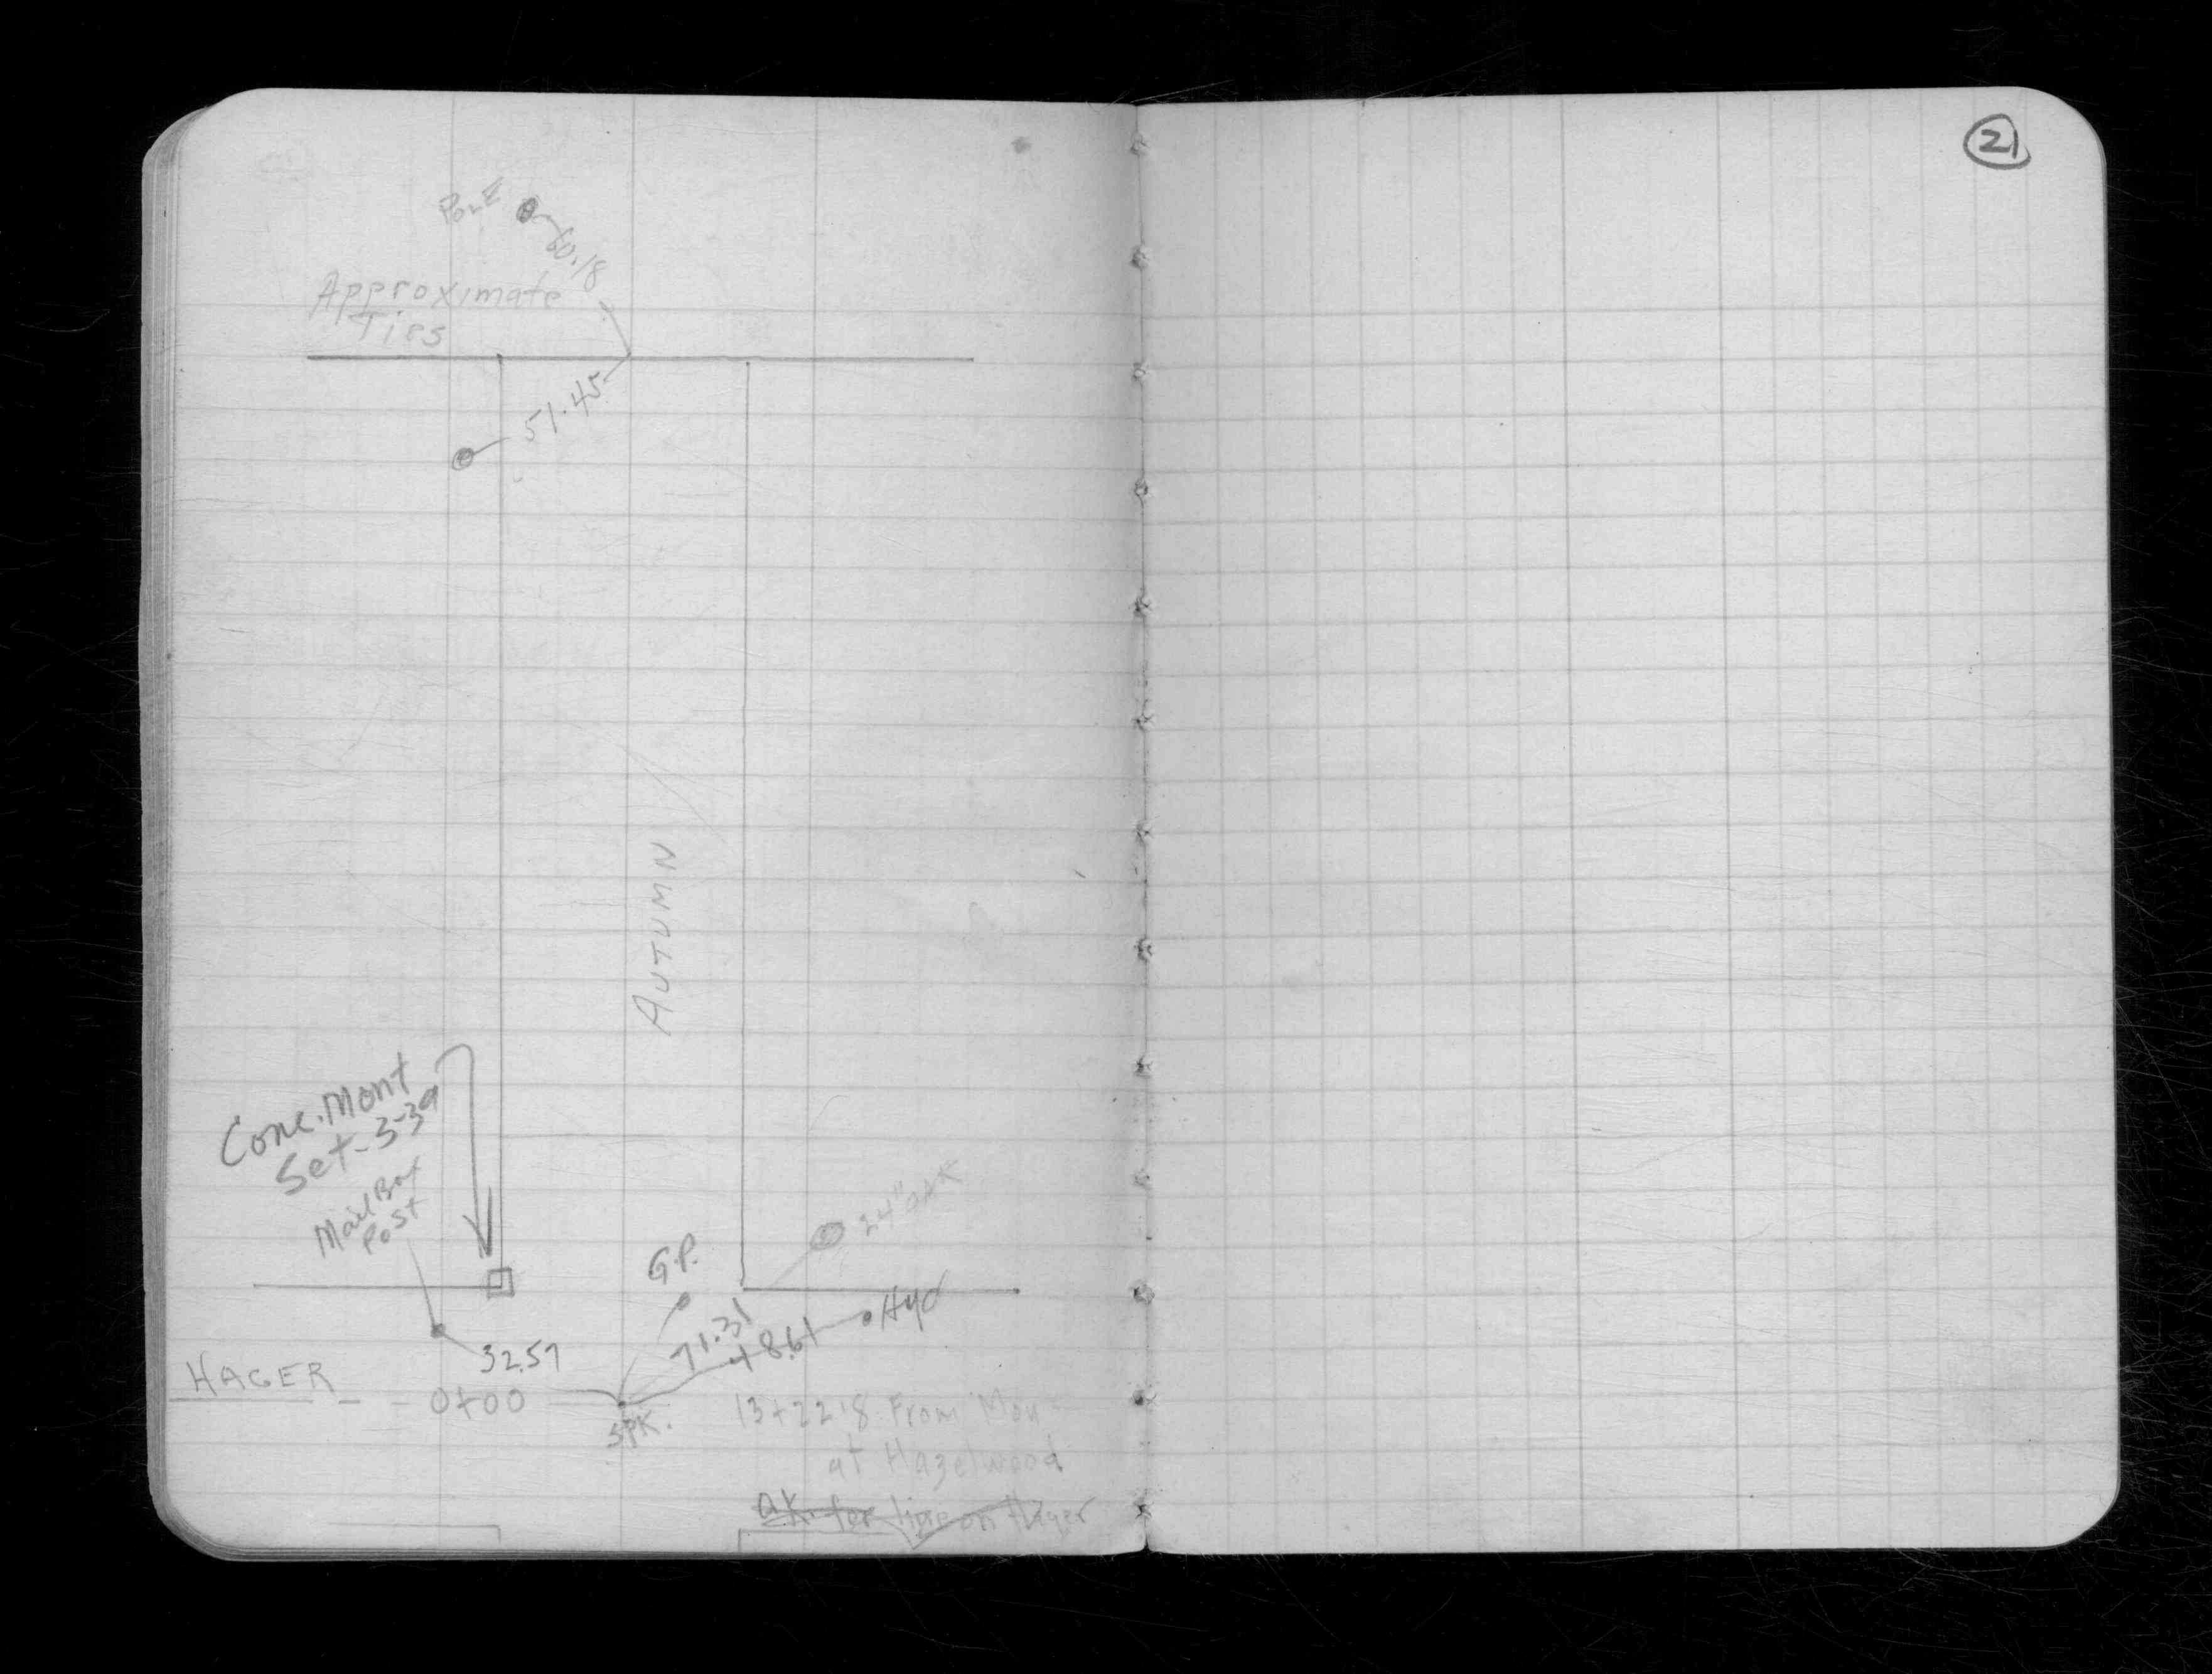 21
POLE
60.18
Approximate
Ties
51.45
AUTUMN
Conc. Mont
Set-3-39
Mail Box
Post
24" OAK
G.P.
71.31
+8.61
Hyd
32.57
HAGER
0+00
SPK.
13+22.8 From Mon
at Hazelwood
O.K. for line on Hager